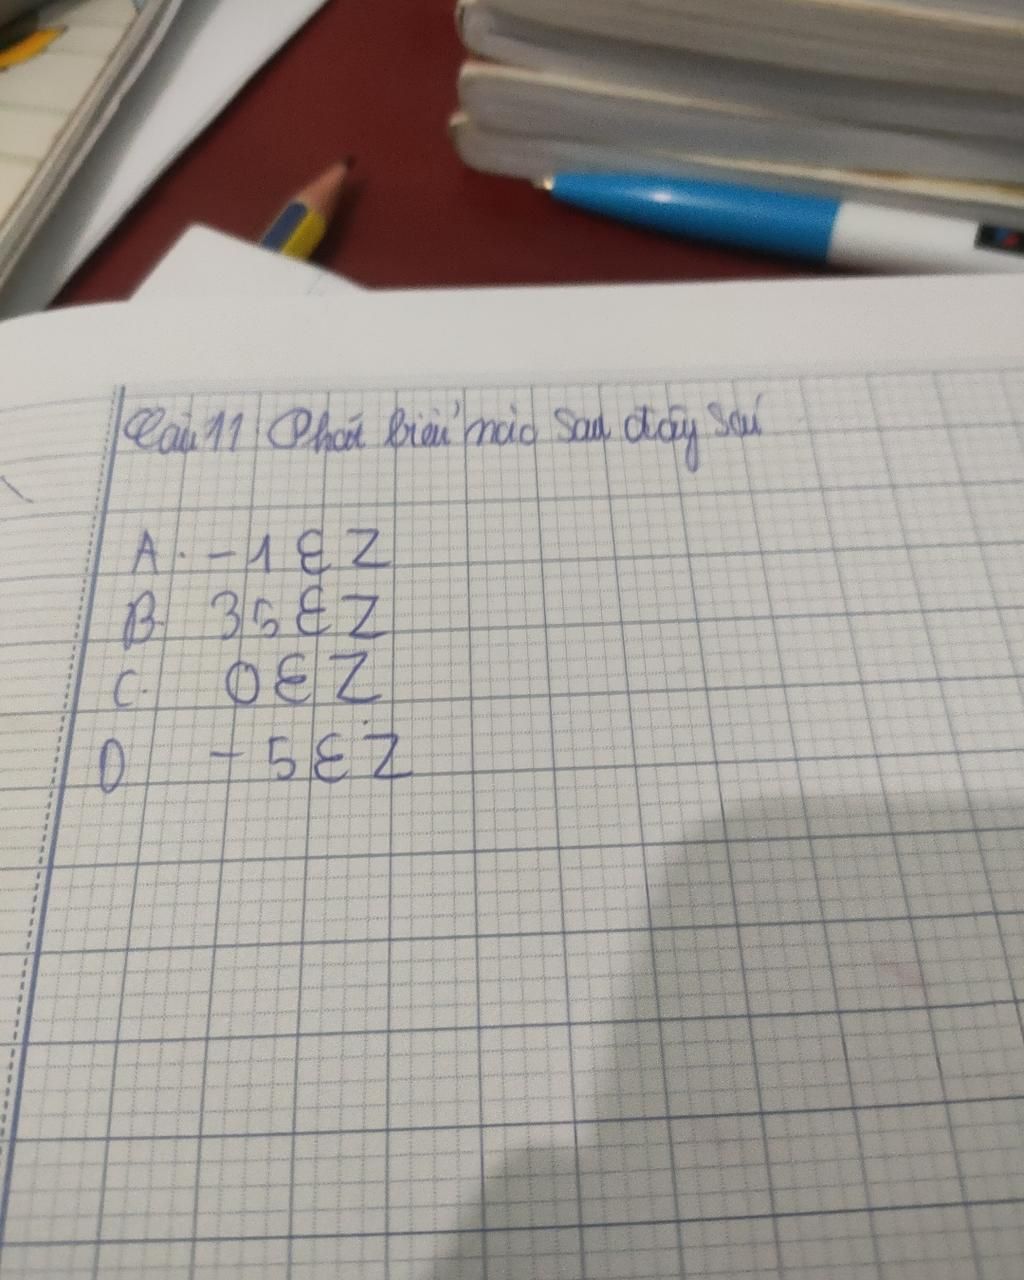 Câu 11 Phát biểu nào sau đây sai
A. -1 ∈ Z
B. 35 ∈ Z
C. 0 ∈ Z
D -5 ∈ Z